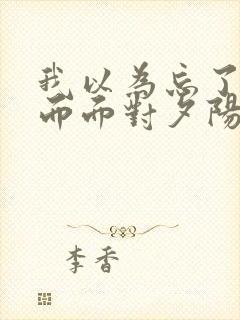 我以為忘了
而而對夕陽
李香